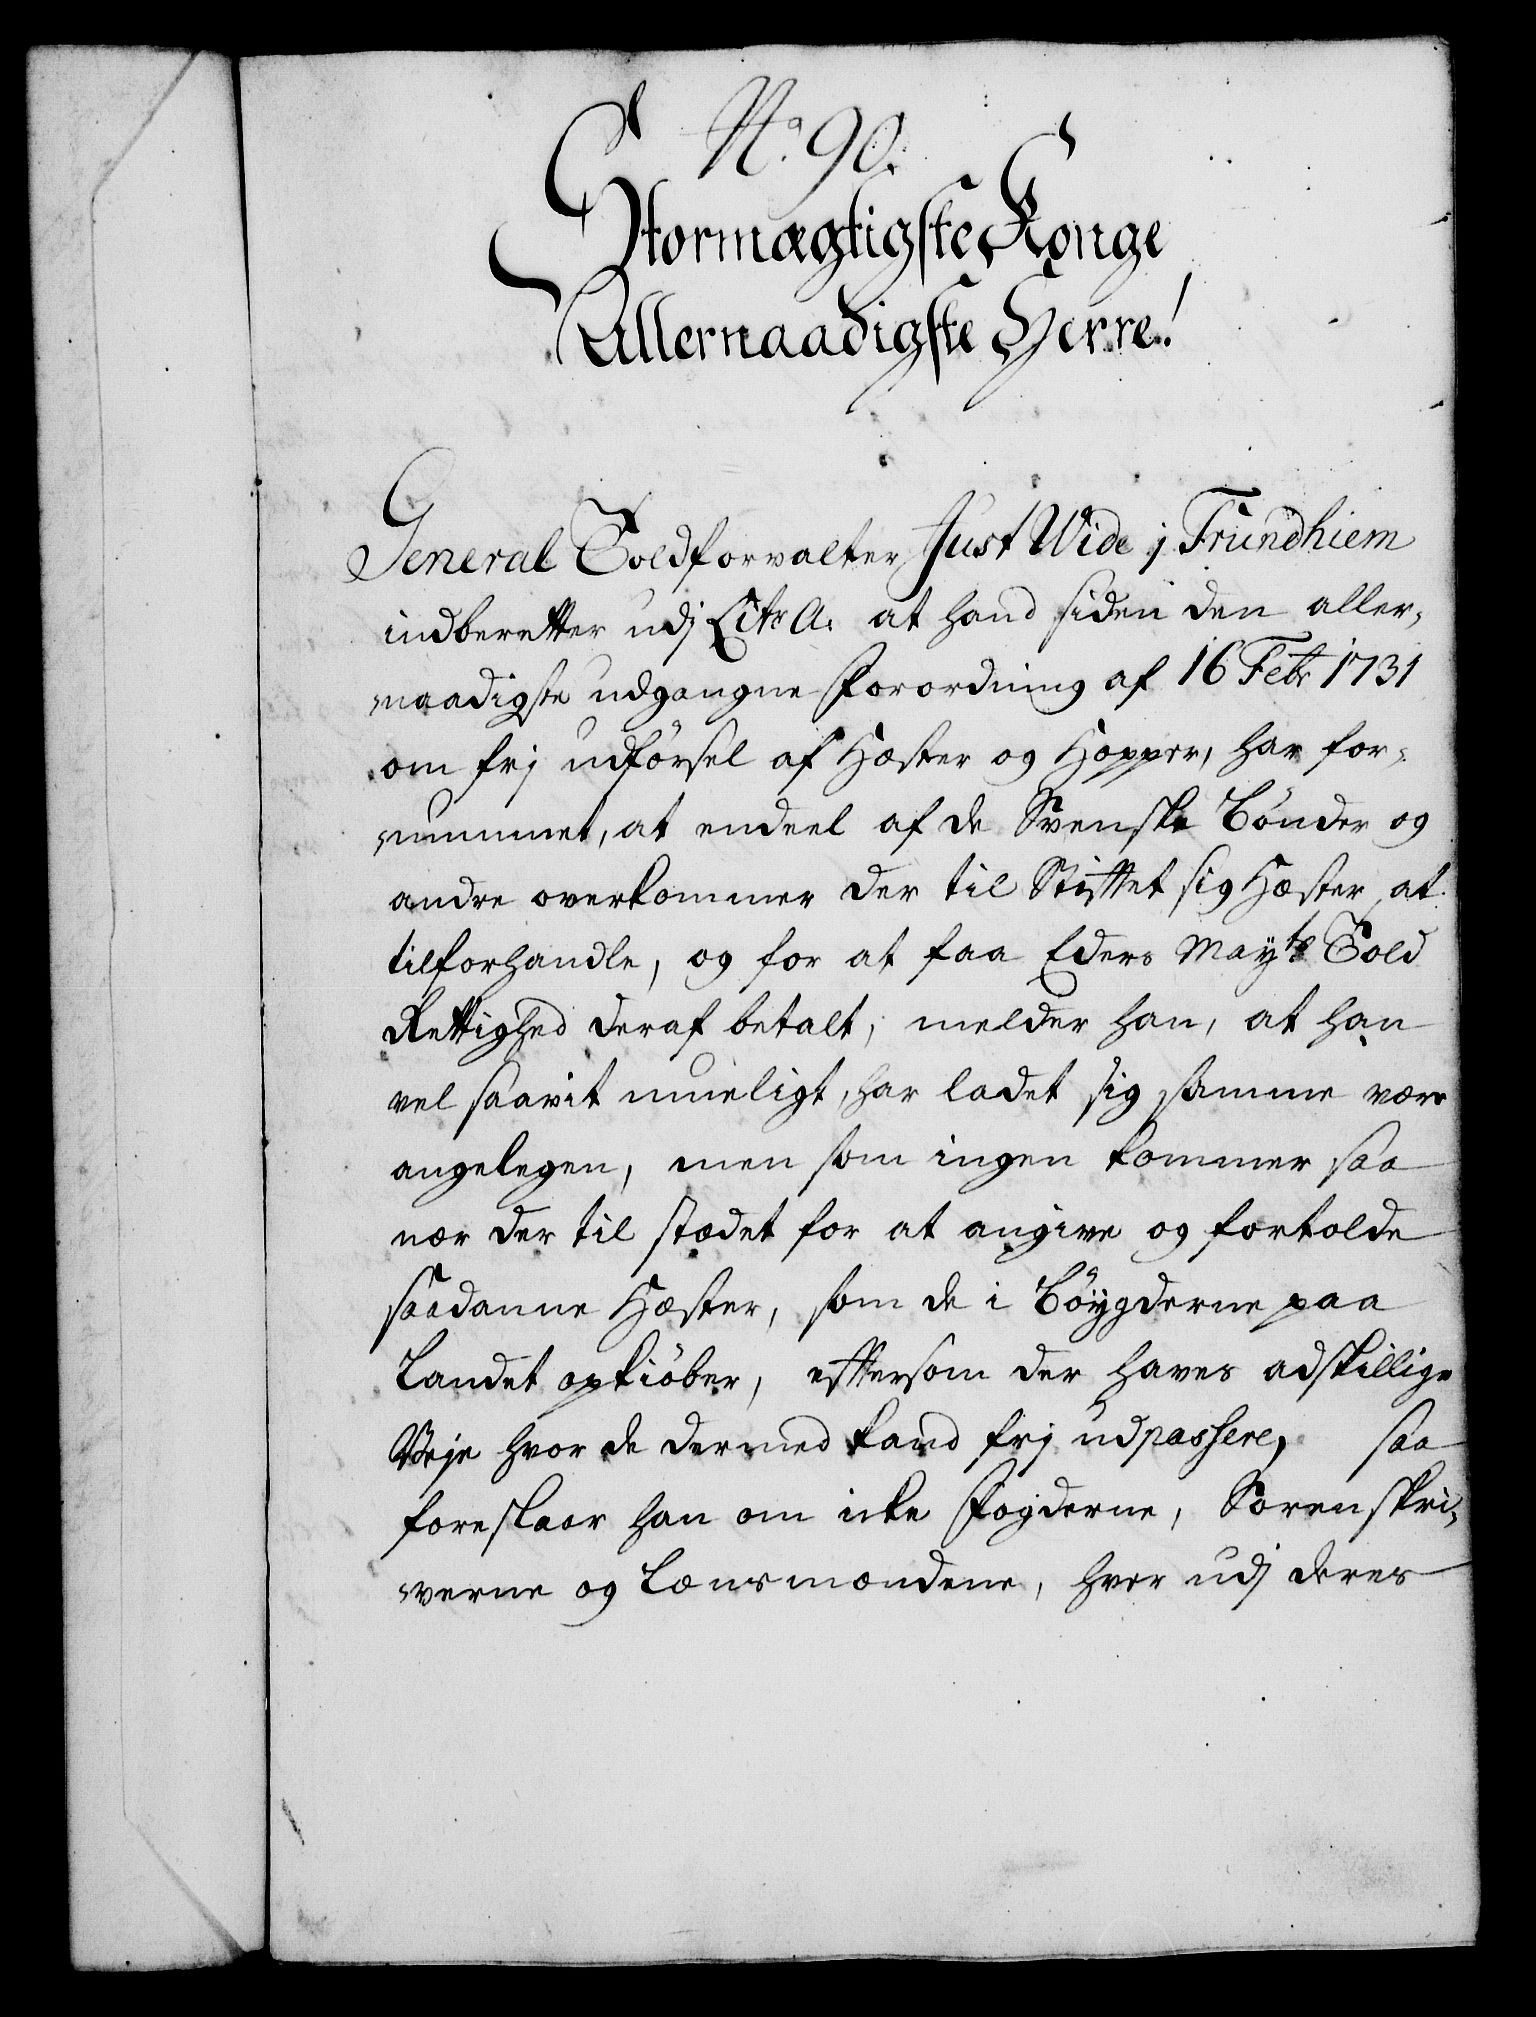 No. 90.
Stormægtigste Konge
Allernaadigste Herre!
General Toldforvalter Just Wide j Trundhiem
indberetter udj Litr A. at hand siden den aller-
naadigste udgangne Forordning af 16 Febr 1731
om frj udførsel af Hæster og Hopper, har for-
nummet, at endeel af de Svenske Bønder og
andre overkommer der til Stiftet sig Hæster at
tilforhandle, og for at faa Eders Mayts Told
Rettighed deraf betalt, melder han, at han
vel saavit mueligt, har ladet sig samme være
angelegen, men som ingen kommer saa
nær der til stædet for at angive og fortolde
saadanne Hæster, som de i Bøygderne paa
Landet opkiøber, eftersom der haves adskillige
Veje hvor de dermed kand frj udpassere, saa
foreslaar han om icke Fogderne, Sorenskri-
verne og Lænsmændene, hver udj deres